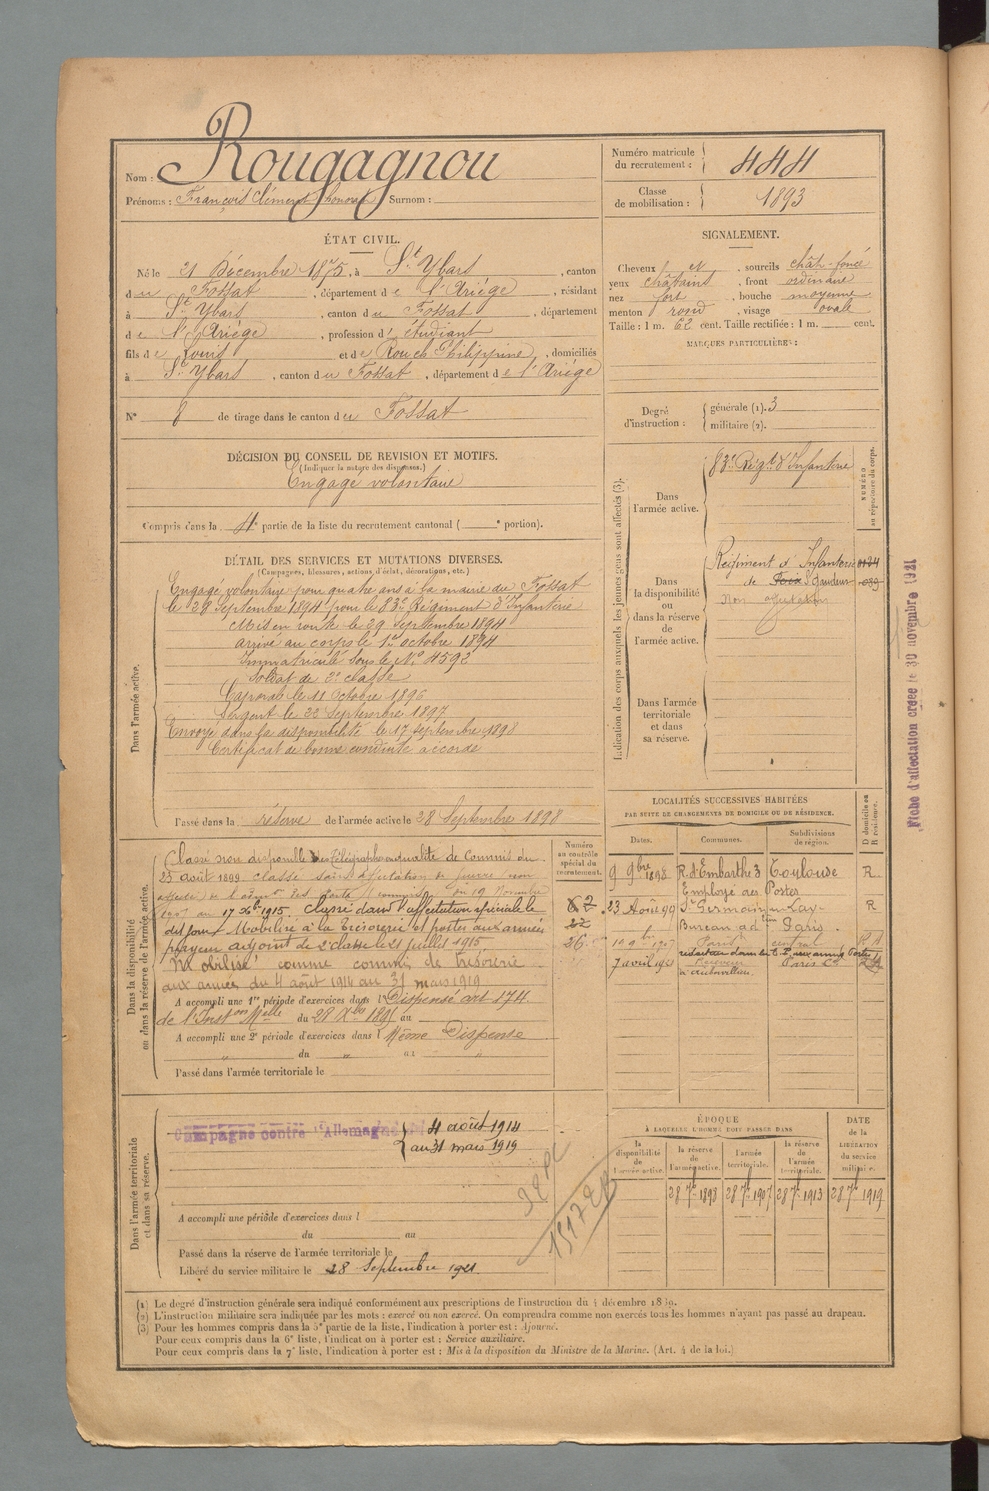 Nom : Rougagnou
Prénoms : François Clément Honoré Surnom :
Numéro matricule du recrutement : 444
Classe de mobilisation : 1893
ÉTAT CIVIL.
Né le 21 Décembre 1875, à St Ybars, canton
du Fossat, département de l'Ariège, résidant
à St Ybars, canton du Fossat, département
de l'Ariège, profession d'étudiant
fils de Louis et de Rouch Philippine, domiciliés
à St Ybars, canton du Fossat, département de l'Ariège
N° 8 de tirage dans le canton du Fossat
SIGNALEMENT.
Cheveux et sourcils chât. foncé
yeux châtains, front ordinaire
nez fort, bouche moyenne
menton rond, visage ovale
Taille : 1 m. 62 cent. Taille rectifiée : 1 m. cent.
MARQUES PARTICULIÈRES :
Degré d'instruction : générale (1). 3
militaire (2).
DÉCISION DU CONSEIL DE REVISION ET MOTIFS.
(Indiquer la nature des dispenses.)
Engagé volontaire
Compris dans la 4e partie de la liste du recrutement cantonal ( e portion).
DÉTAIL DES SERVICES ET MUTATIONS DIVERSES.
(Campagnes, blessures, actions d'éclat, décorations, etc.)
Dans l'armée active.
Engagé volontaire pour quatre ans à la mairie du Fossat
le 29 Septembre 1894 pour le 83e Régiment d'Infanterie
Mis en route le 29 Septembre 1894
arrivé au corps le 1er octobre 1894
Immatriculé sous le N° 4592
Soldat de 2e classe
Caporal le 11 Octobre 1896
Sergent le 22 Septembre 1897
Envoyé dans la disponibilité le 17 septembre 1898
Certificat de bonne conduite accordé
Passé dans la réserve de l'armée active le 28 Septembre 1898
Indication des corps auxquels les jeunes gens sont affectés (3).
NUMÉRO au répertoire du corps.
Dans l'armée active.
83e Régt d'Infanterie
Dans la disponibilité ou dans la réserve de l'armée active.
Régiment d'Infanterie
de Foix St Gaudens
Non affectation
Dans l'armée territoriale et dans sa réserve.
Fiche d'affectation créée le 30 novembre 1921
Dans la disponibilité ou dans la réserve de l'armée active.
Numéro au contrôle spécial du recrutement.
Classé non disponible des Télégraphes en qualité de Commis du
23 août 1899 classé sans affectation de guerre (non
du 19 Novembre
1907 au 17 Xbre 1915. Classé dans l'affectation spéciale le
dit jour Mobilisé à la trésorerie et postes aux armées
payeur adjoint de 2e classe le 21 juillet 1915
Mobilisé comme commis de trésorerie
aux armées du 4 août 1914 au 31 mars 1919
A accompli une 1re période d'exercices dans l Dispensé art 174
de l'Inston Melle du 28 Xbre 1895 au
A accompli une 2e période d'exercices dans l Même Dispense
du " au "
Passé dans l'armée territoriale le
LOCALITÉS SUCCESSIVES HABITÉES
PAR SUITE DE CHANGEMENTS DE DOMICILE OU DE RÉSIDENCE.
Dates. Communes. Subdivisions de région. D domicile ou R résidence.
9 9bre 1898 R. d'Embarthe 3 Toulouse R
Employé des Postes
23 Août 99 St Germain-en-Laye R
Bureau Paris
Paris central
rédacteur dans les T.P. aux armées Postes
7 avril 1921 Receveur Paris
à Aubervilliers
Dans l'armée territoriale et dans sa réserve.
Campagne contre l'Allemagne du 4 août 1914
au 31 mars 1919
A accompli une période d'exercices dans l
du au
Passé dans la réserve de l'armée territoriale le
Libéré du service militaire le 28 Septembre 1921
ÉPOQUE
À LAQUELLE L'HOMME DOIT PASSER DANS
DATE de la LIBÉRATION du service militaire.
la disponibilité de l'armée active.
la réserve de l'armée active. 28 7bre 1898
l'armée territoriale. 28 7bre 1907
la réserve de l'armée territoriale. 28 7bre 1913
28 7bre 1919
(1) Le degré d'instruction générale sera indiqué conformément aux prescriptions de l'instruction du 4 décembre 1889.
(2) L'instruction militaire sera indiquée par les mots : exercé ou non exercé. On comprendra comme non exercés tous les hommes n'ayant pas passé au drapeau.
(3) Pour les hommes compris dans la 5e partie de la liste, l'indication à porter est : Ajourné.
Pour ceux compris dans la 6e liste, l'indication à porter est : Service auxiliaire.
Pour ceux compris dans la 7e liste, l'indication à porter est : Mis à la disposition du Ministre de la Marine. (Art. 4 de la loi.)